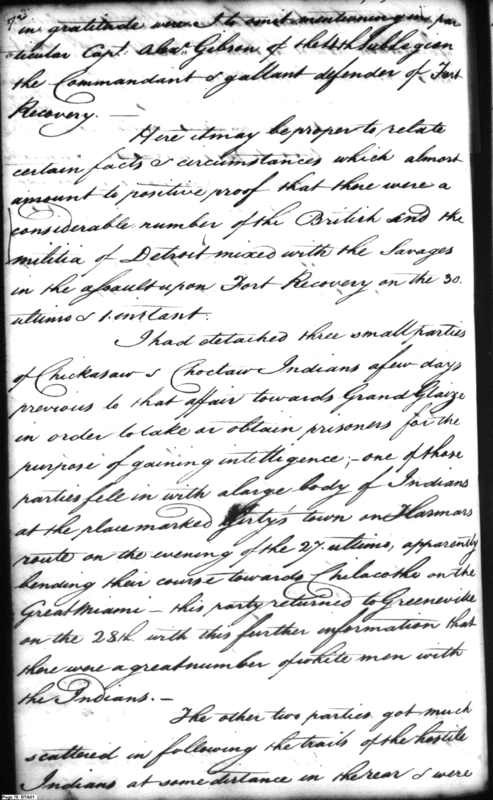 in gratitude were I to omit mentioning in par
ticular Capt. Alexr. Gibson of the 4th Sub Legion
the Commandant & gallant defender of Fort
Recovery. —
Here it may be proper to relate
certain facts & circumstances which almost
amount to positive proof that there were a
considerable number of the British and the
militia of Detroit mixed with the Savages
in the assault upon Fort Recovery on the 30.
ultimo & 1. instant.
I had detached three small parties
of Chickasaw & Choctaw Indians a few days
previous to that affair towards Grand Glaize
in order to take or obtain prisoners for the
purpose of gaining intelligence; – one of those
parties fell in with a large body of Indians
at the place marked Girty's town on Harmars
route on the evening of the 27. ultimo, apparently
bending their course towards Chelacothe on the
Great Miami – this party returned to Greeneville
on the 28th. with this further information that
there were a great number of white men with
the Indians. —
The other two parties got much
scattered in following the trails of the hostile
Indians at some distance in the rear & were